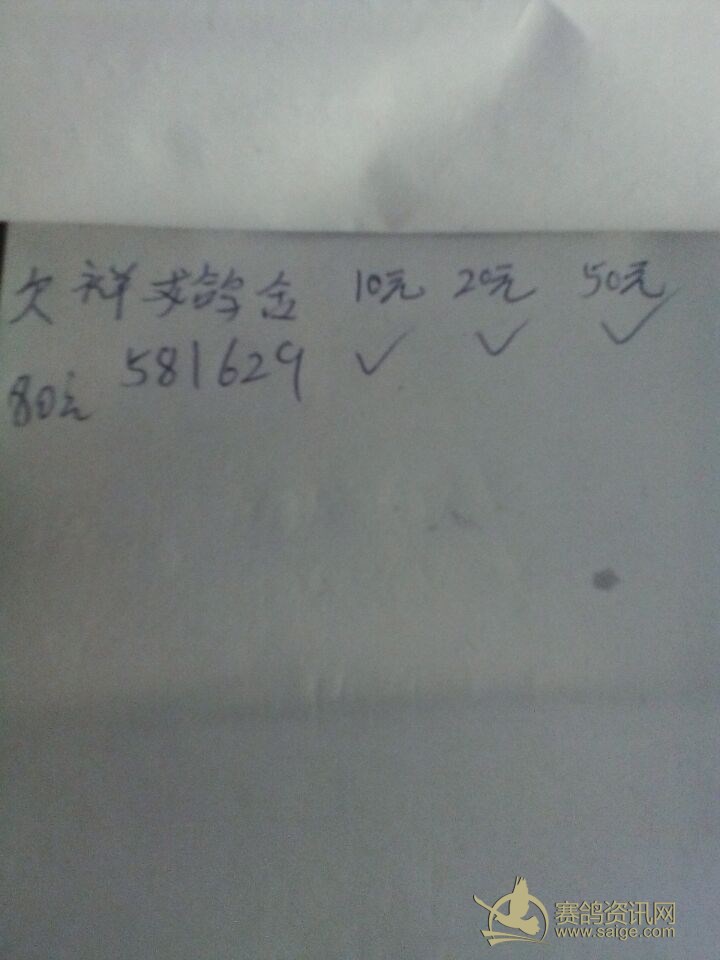 欠祥 鸽金 10元 20元 50元
581629 ✓ ✓ ✓
80元
赛鸽资讯网
www.saige.com